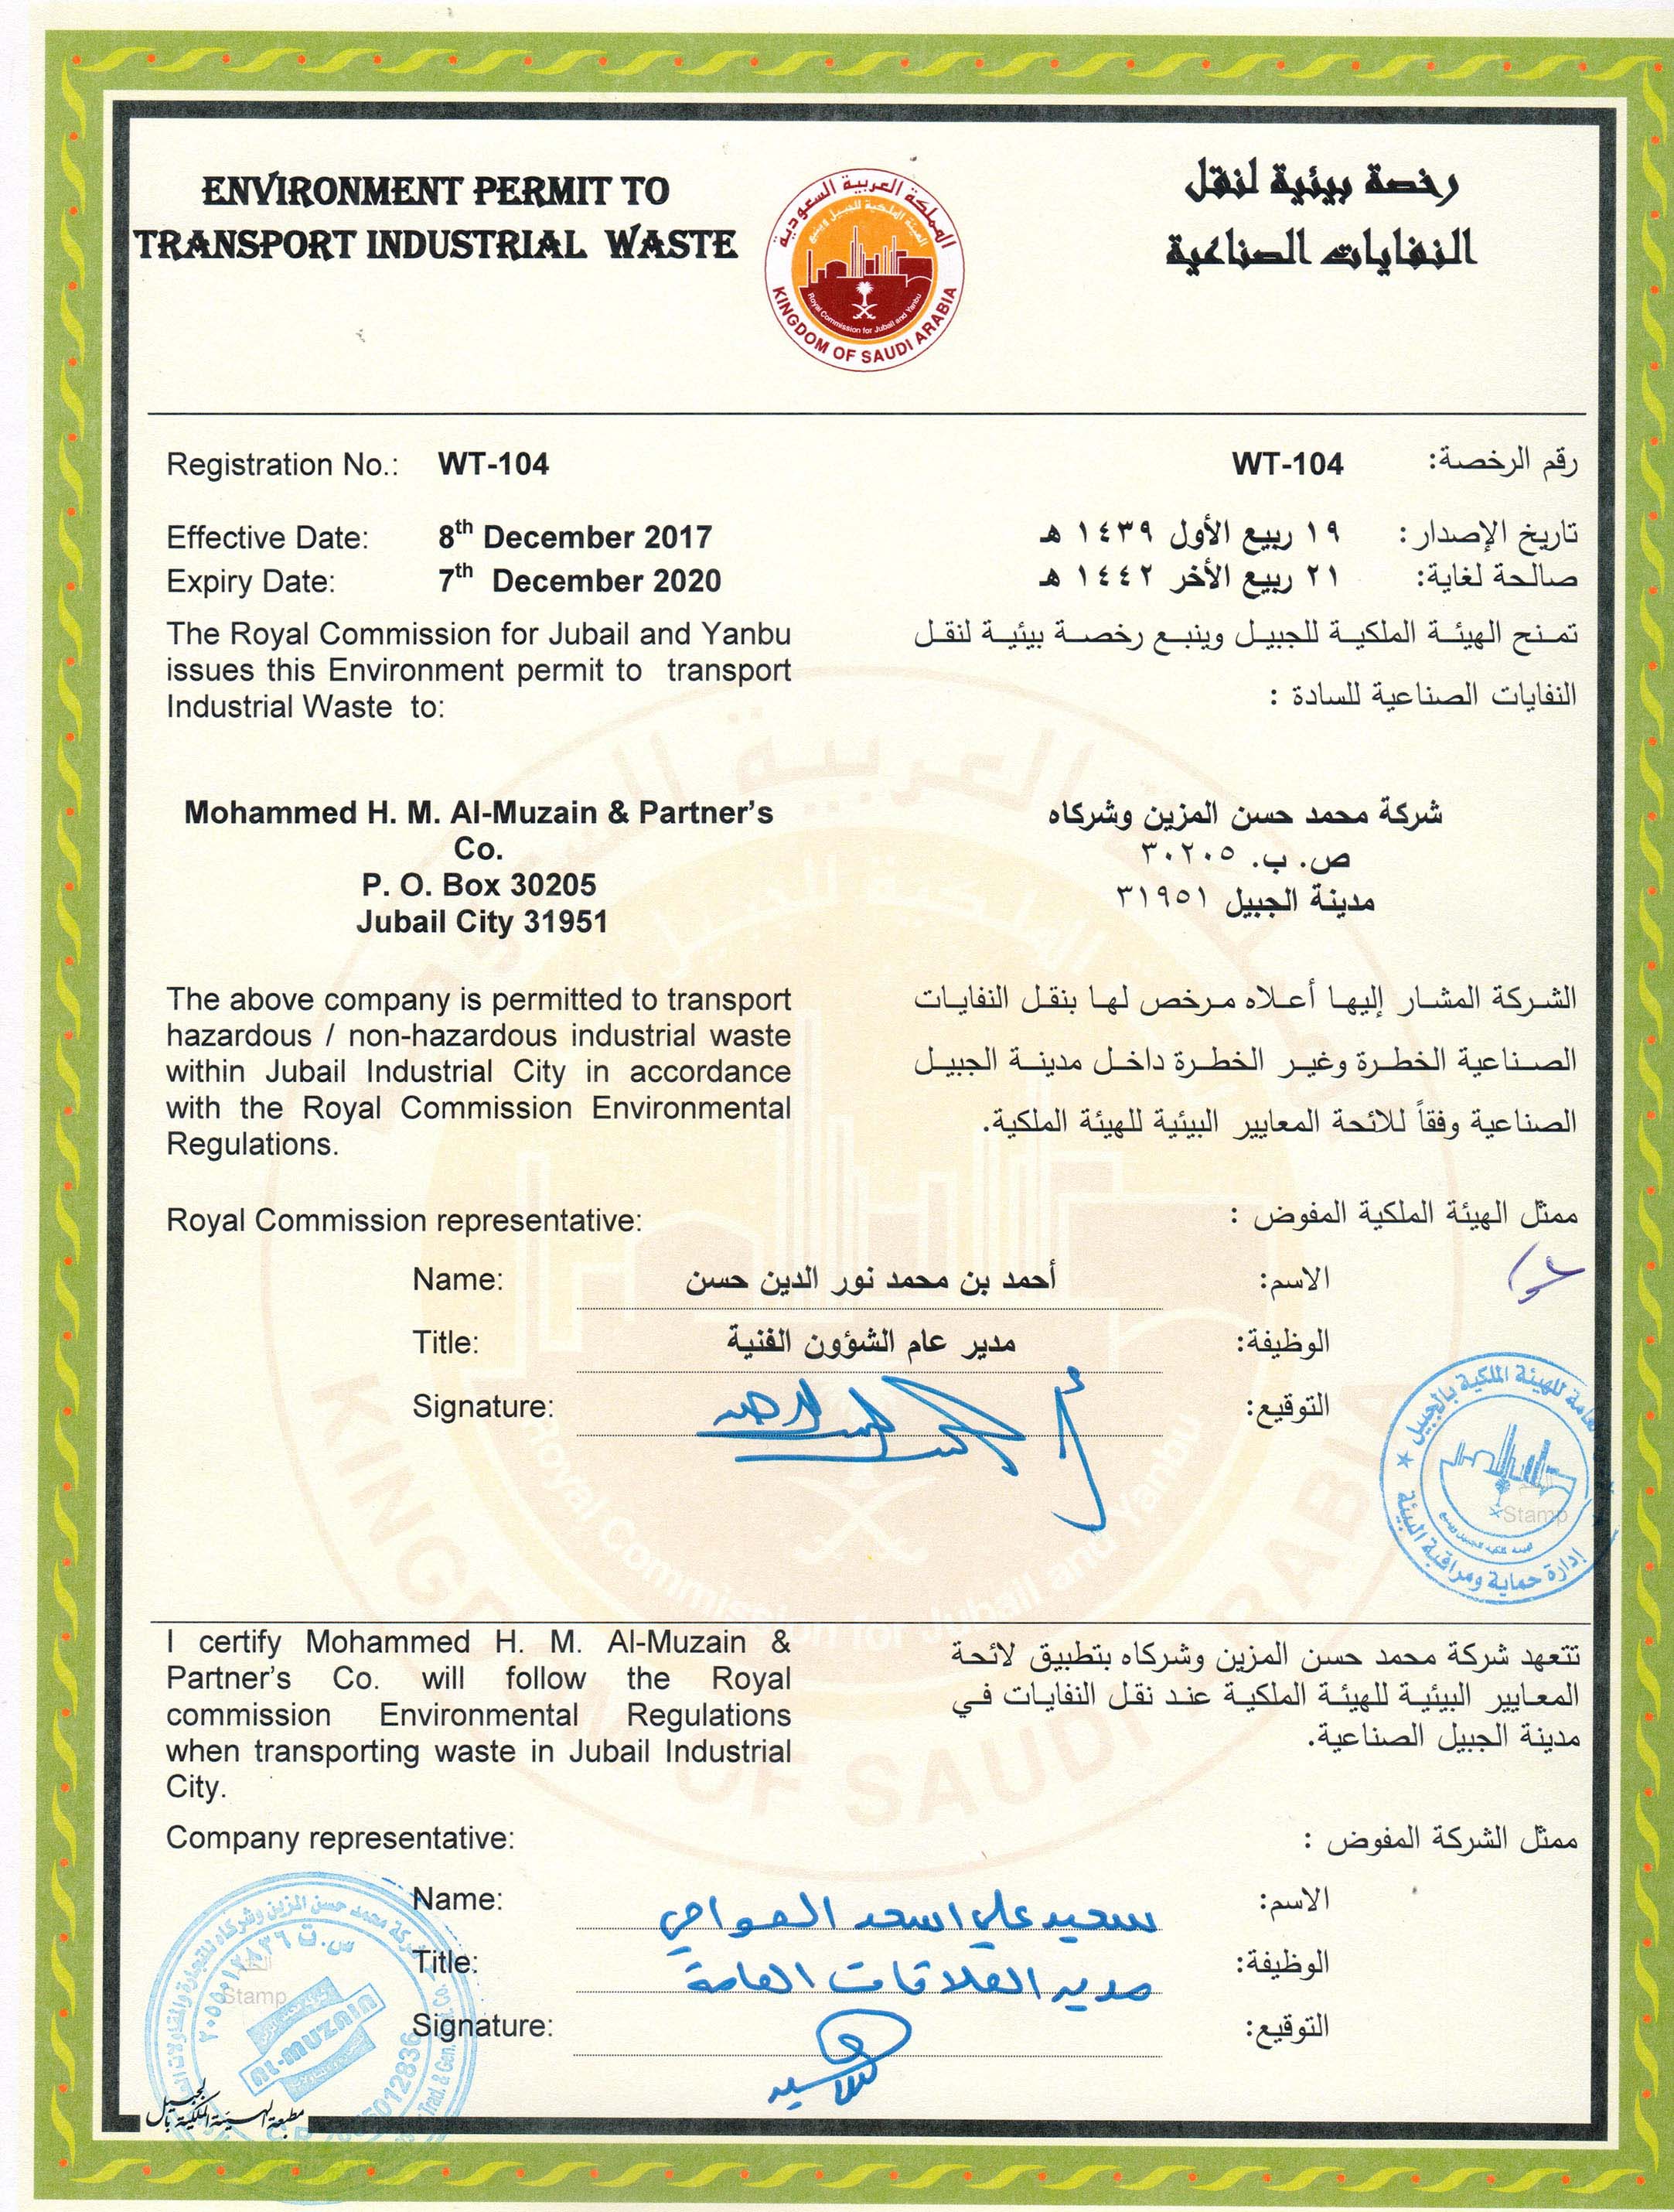 ENVIRONMENT PERMIT TO
TRANSPORT INDUSTRIAL WASTE
المملكة العربية السعودية
الهيئة الملكية للجبيل وينبع
Royal Commission for Jubail and Yanbu
KINGDOM OF SAUDI ARABIA
رخصة بيئية لنقل
النفايات الصناعية
Registration No.: WT-104
WT-104 رقم الرخصة:
Effective Date: 8th December 2017
تاريخ الإصدار: ١٩ ربيع الأول ١٤٣٩ هـ
Expiry Date: 7th December 2020
صالحة لغاية: ٢١ ربيع الأخر ١٤٤٢ هـ
The Royal Commission for Jubail and Yanbu
issues this Environment permit to transport
Industrial Waste to:
تمنح الهيئة الملكية للجبيل وينبع رخصة بيئية لنقل
النفايات الصناعية للسادة :
Mohammed H. M. Al-Muzain & Partner's
Co.
P. O. Box 30205
Jubail City 31951
شركة محمد حسن المزين وشركاه
ص. ب. ٣٠٢٠٥
مدينة الجبيل ٣١٩٥١
The above company is permitted to transport
hazardous / non-hazardous industrial waste
within Jubail Industrial City in accordance
with the Royal Commission Environmental
Regulations.
الشركة المشار إليها أعلاه مرخص لها بنقل النفايات
الصناعية الخطرة وغير الخطرة داخل مدينة الجبيل
الصناعية وفقاً للائحة المعايير البيئية للهيئة الملكية.
Royal Commission representative:
ممثل الهيئة الملكية المفوض :
Name: أحمد بن محمد نور الدين حسن الاسم:
Title: مدير عام الشؤون الفنية الوظيفة:
Signature: التوقيع:
للهيئة الملكية بالجبيل
إدارة حماية ومراقبة البيئة
Stamp
I certify Mohammed H. M. Al-Muzain &
Partner's Co. will follow the Royal
commission Environmental Regulations
when transporting waste in Jubail Industrial
City.
تتعهد شركة محمد حسن المزين وشركاه بتطبيق لائحة
المعايير البيئية للهيئة الملكية عند نقل النفايات في
مدينة الجبيل الصناعية.
Company representative:
ممثل الشركة المفوض :
Name: سعيد علي اسعد العواجي الاسم:
Title: مدير العلاقات العامة الوظيفة:
Signature: التوقيع:
شركة محمد حسن المزين وشركاه للتجارة والمقاولات
س.ت ٢٠٥٥٠١٢٨٣٦
Stamp
AL-MUZAIN
مطبعة الهيئة الملكية بالجبيل